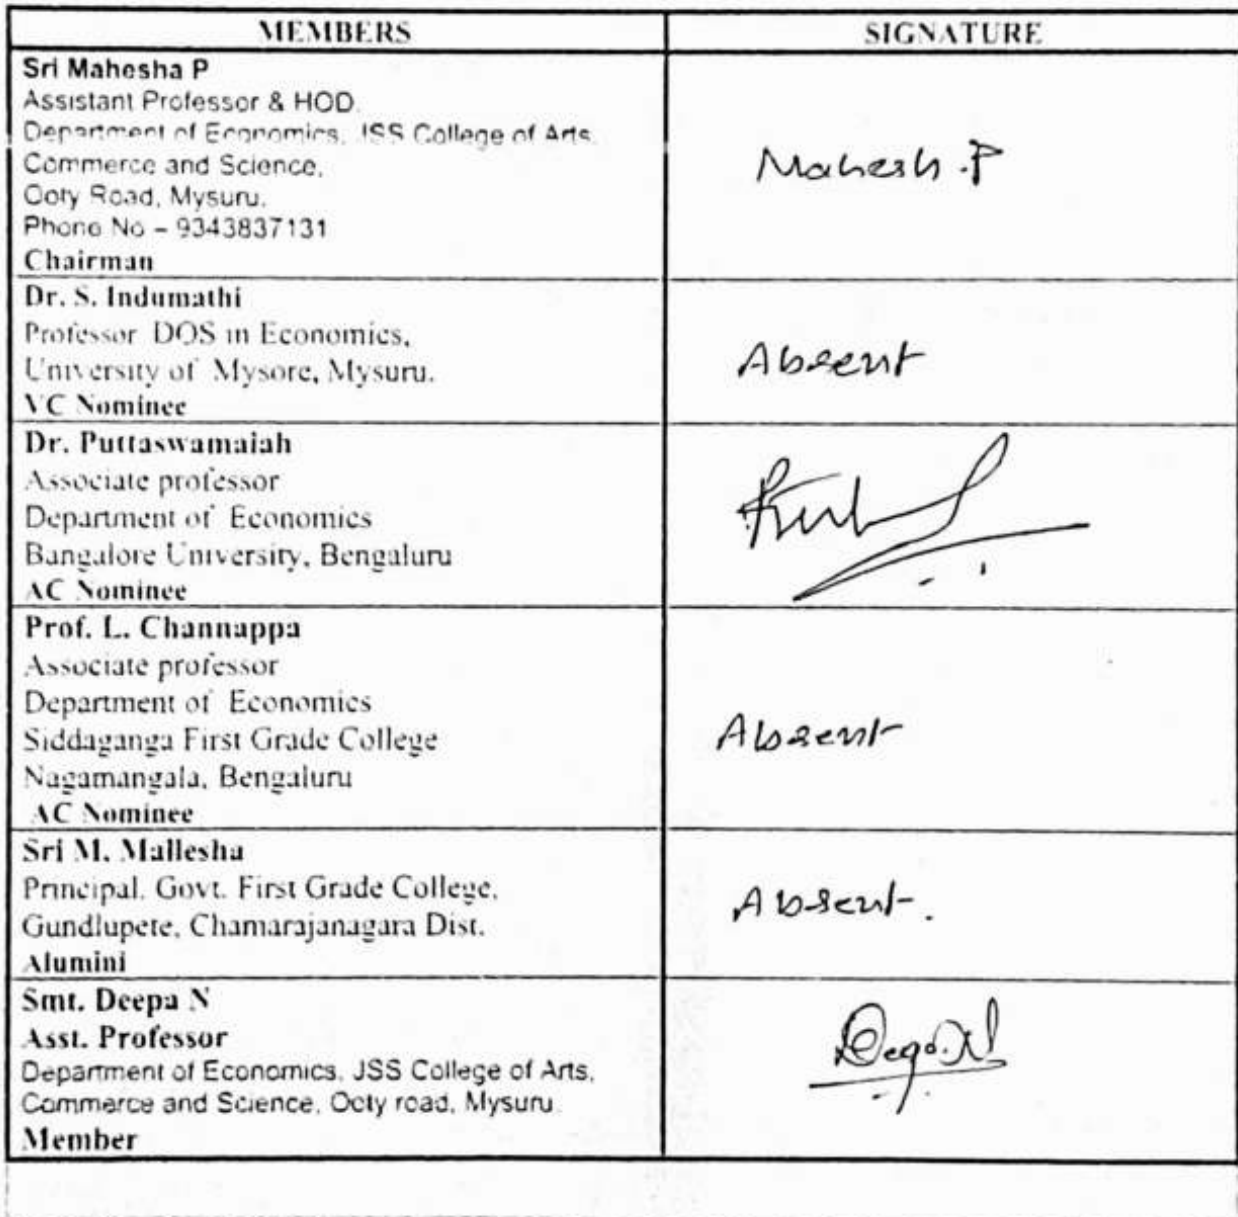 MEMBERS SIGNATURE
Sri Mahesha P
Assistant Professor & HOD.
Department of Economics, JSS College of Arts,
Commerce and Science,
Ooty Road, Mysuru.
Phone No – 9343837131
Chairman
Mahesh .P
Dr. S. Indumathi
Professor DOS in Economics,
University of Mysore, Mysuru.
VC Nominee
Absent
Dr. Puttaswamaiah
Associate professor
Department of Economics
Bangalore University, Bengaluru
AC Nominee
Prof. L. Channappa
Associate professor
Department of Economics
Siddaganga First Grade College
Nagamangala, Bengaluru
AC Nominee
Absent
Sri M. Mallesha
Principal. Govt. First Grade College,
Gundlupete, Chamarajanagara Dist.
Alumini
Absent.
Smt. Deepa N
Asst. Professor
Department of Economics, JSS College of Arts,
Commerce and Science, Ooty road, Mysuru.
Member